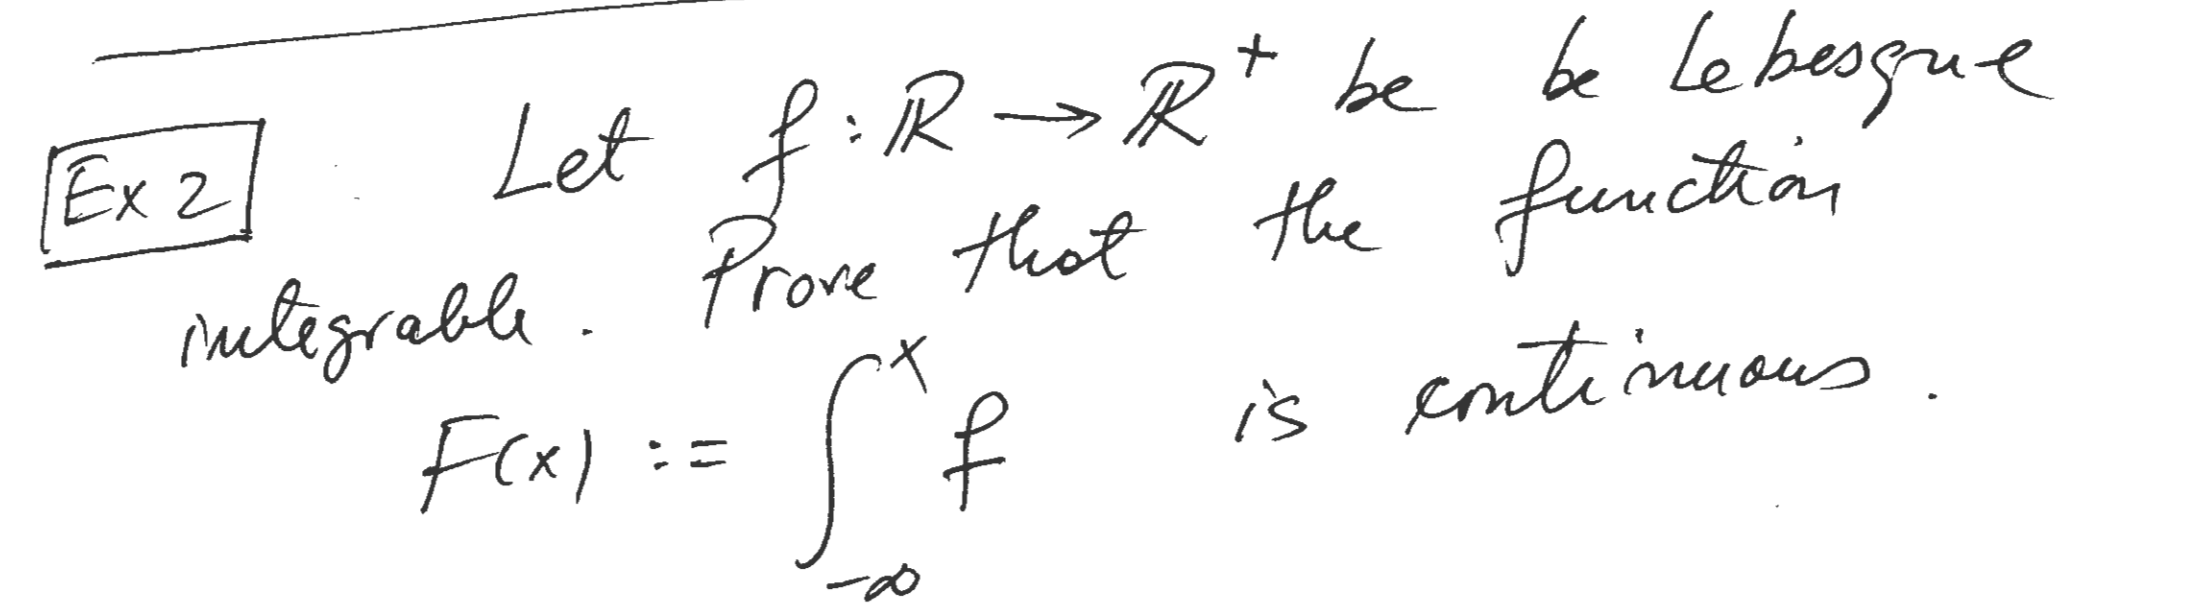 Ex 2 Let f : ℝ → ℝ⁺ be be Lebesgue
integrable. Prove that the function
F(x) := ∫_{-∞}^{x} f is continuous.